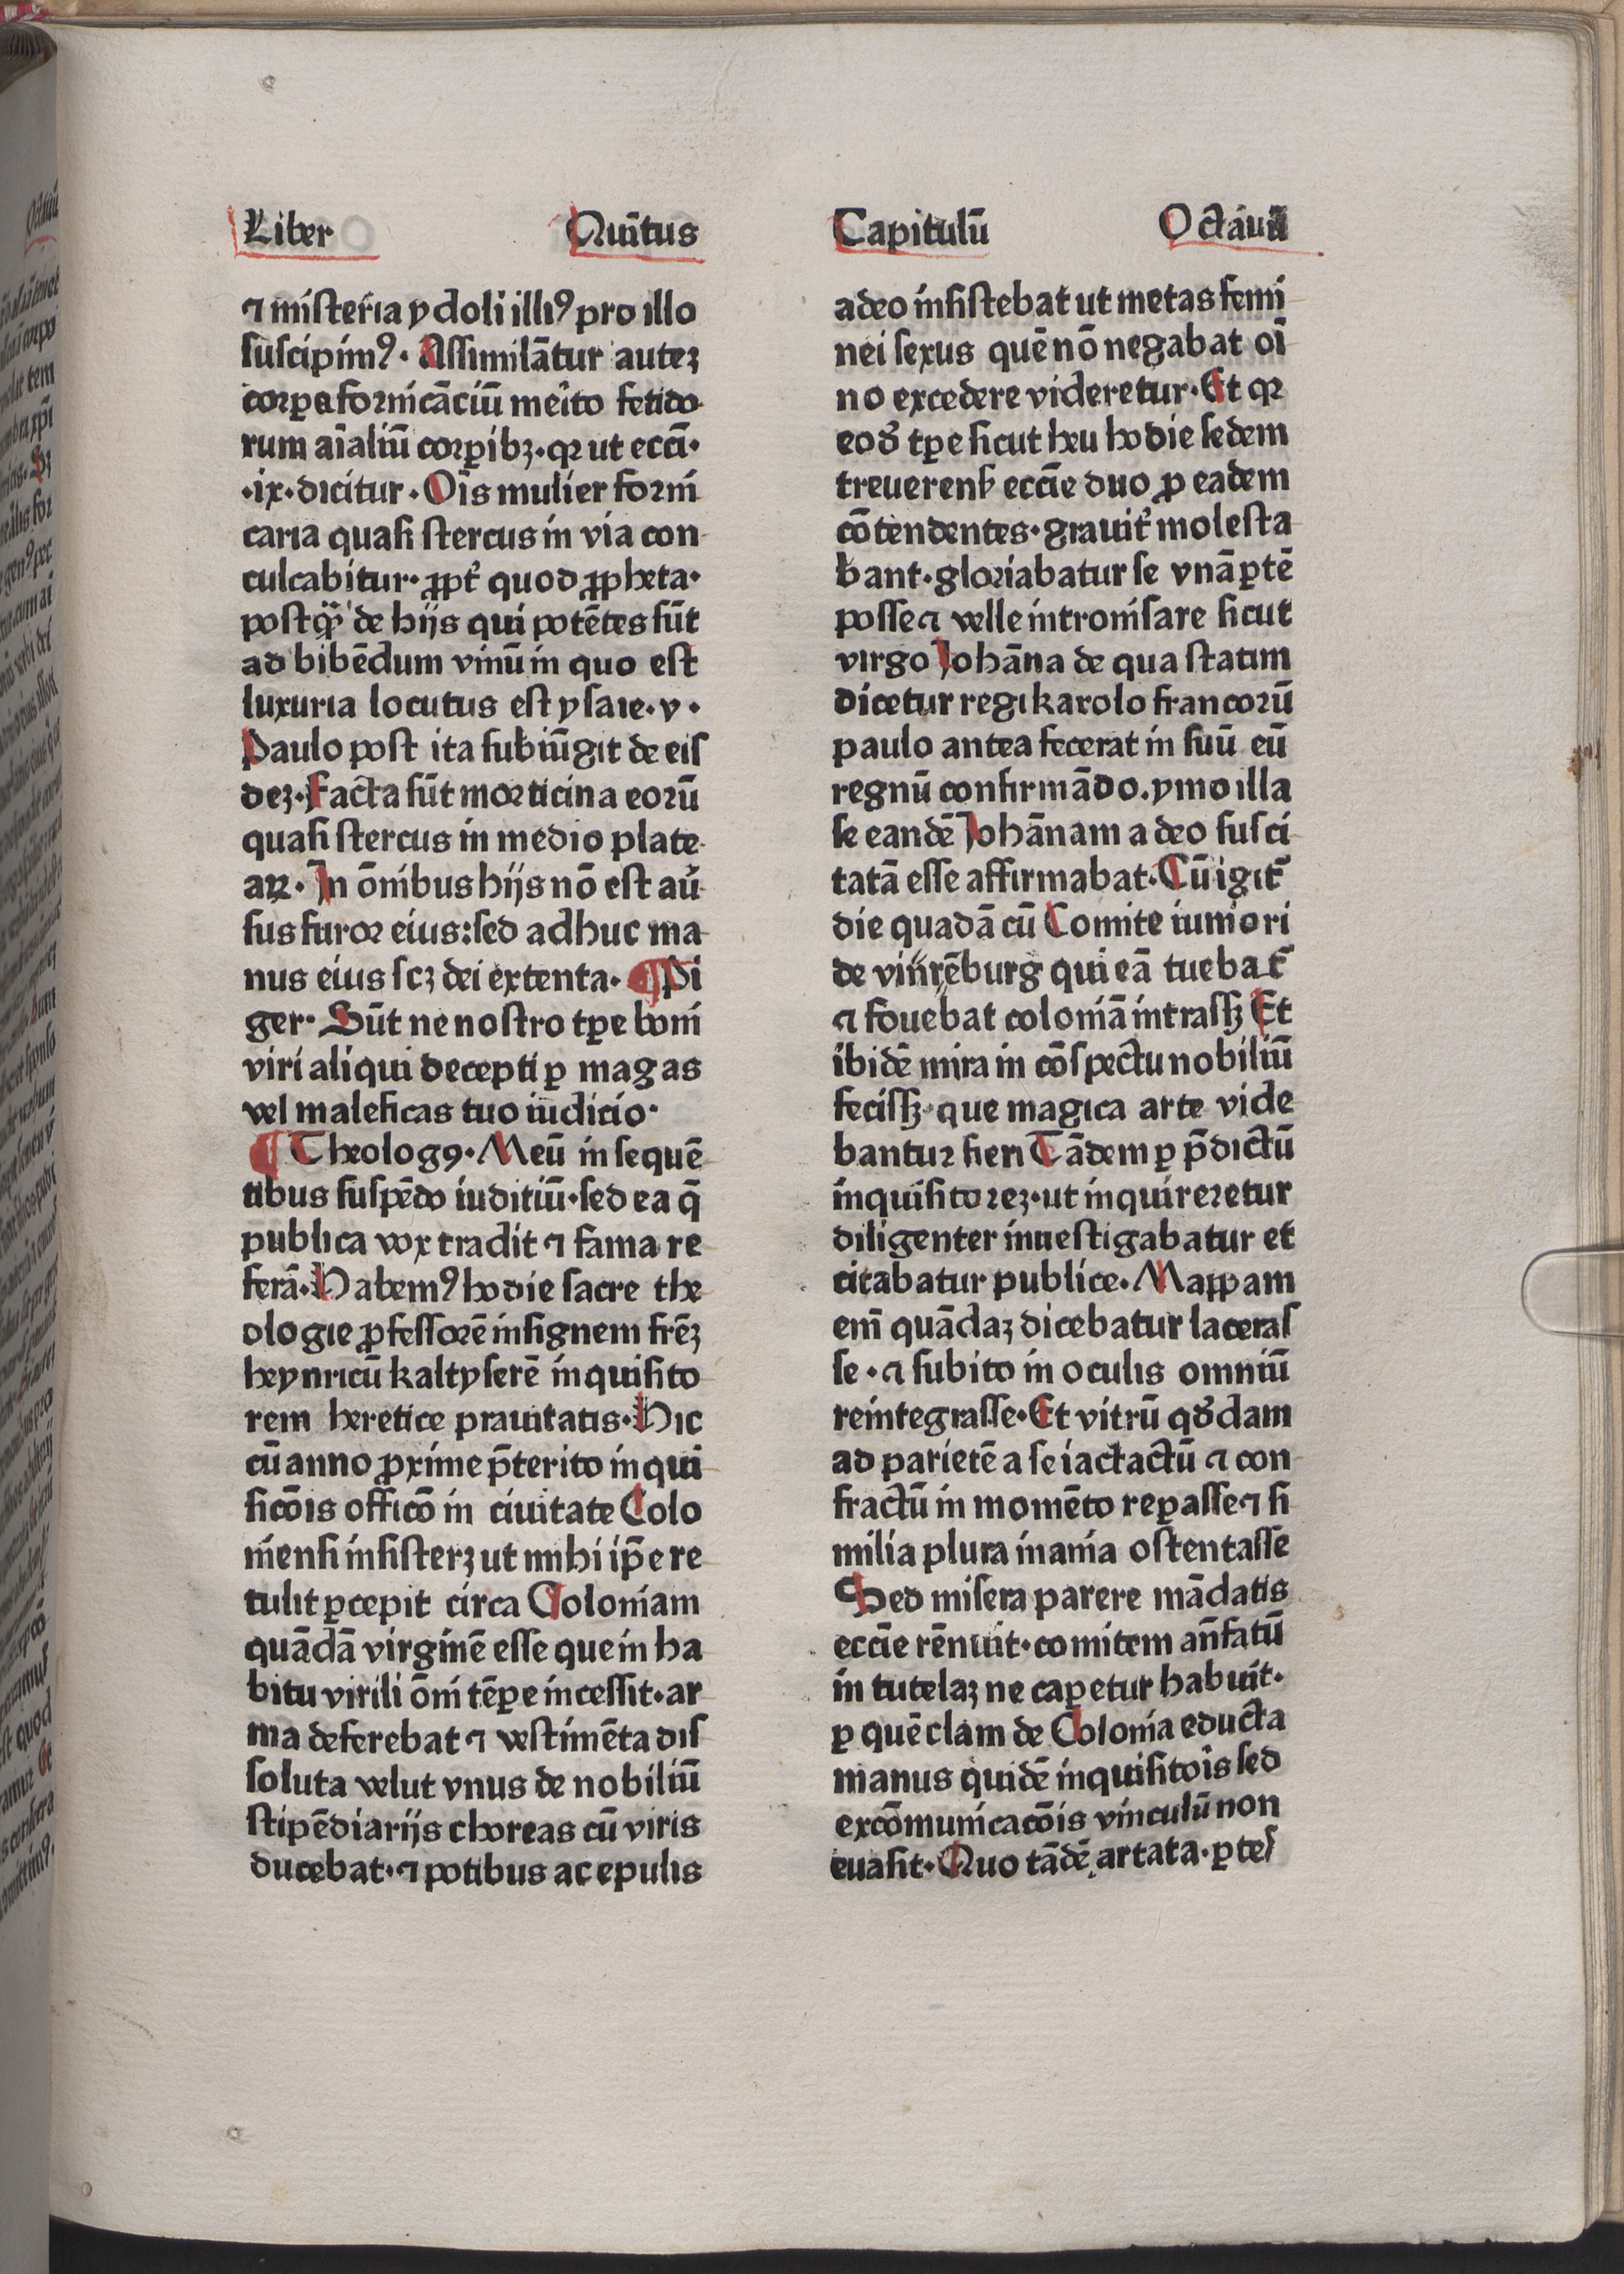 Liber Quītus
⁊ misteria ydoli illiꝰ pro illo
suscipimꝰ. Assimilātur autez
corꝑa fornicāciū meito fetido
rum aīaliū corꝑibꝫ. qꝛ ut eccī.
.ix. dicitur. Oīs mulier forni
caria quasi stercus in via con
culcabitur. ꝓpt̄ quod ꝓpheta.
postꝙ̄ de hijs qui potētes sūt
ad bibēdum vinū in quo est
luxuria locutus est ysaie. v.
Paulo post ita subiūgit de eis
dez. Facta sūt morticina eorū
quasi stercus in medio plate
aꝝ. In ōnibus hijs nō est au
sus furor eius: sed adhuc ma
nus eius scꝫ dei extenta. ¶ Pi
ger. Sūt ne nostro tꝑe boni
viri aliqui decepti ꝑ magas
vel maleficas tuo iudicio.
¶ Theologꝰ. Meū in sequē
tibus suspēdo iuditiū. sed ea q̄
publica vox tradit ⁊ fama re
ferā. Habemꝰ hodie sacre the
ologie ꝓfessorē insignem frēz
heynricū kaltyserē inquisito
rem heretice prauitatis. Hic
cū anno ꝓxime p̄terito inqui
sicōis officō in ciuitate Colo
niensi insisterꝫ ut mihi ip̄e re
tulit ꝑcepit circa Coloniam
quādā virginē esse que in ha
bitu virili ōni tēꝑe incessit. ar
ma deferebat ⁊ vestimēta dis
soluta velut vnus de nobiliū
stipēdiarijs choreas cū viris
ducebat. ⁊ potibus ac epulis
Capitulū Octauū
adeo insistebat ut metas femi
nei sexus quē nō negabat oī
no excedere videretur. Et qꝛ
eoꝺ̄ tꝑe sicut heu hodie sedem
treuerenẜ eccīe duo ꝓ eadem
cōtendentes. grauit̄ molesta
bant. gloriabatur se vnā ꝑtē
posse ⁊ velle intronisare sicut
virgo Johāna de qua statim
dicetur regi karolo francorū
paulo antea fecerat in suū eū
regnū confirmādo. ymo illa
se eandē Johānam a deo susci
tatā esse affirmabat. Cū igit̄
die quadā cū Comite iuniori
de virnēburg qui eā tuebat̄
⁊ fouebat coloniā intrasꝫ Et
ibidē mira in cōspectu nobiliū
fecisꝫ que magica arte vide
bantur fieri Tādem ꝑ p̄dictū
inquisitorez. ut inquireretur
diligenter inuestigabatur et
citabatur publice. Maꝑpam
enī quādaz dicebatur laceras
se. ⁊ subito in oculis omniū
reintegrasse. Et vitrū qꝺ̄dam
ad parietē a se iactactū ⁊ con
fractū in momēto reꝑasse ⁊ si
milia plura inania ostentasse
Sed misera parere mādatis
eccīe rēnuit. comitem an̄fatū
in tutelaz ne caꝑetur habuit.
ꝑ quē clam de Colonia educta
manus quidē inquisitoīs sed
excōmunicacōis vinculū non
euasit. Quo tādē artata. ꝑtes